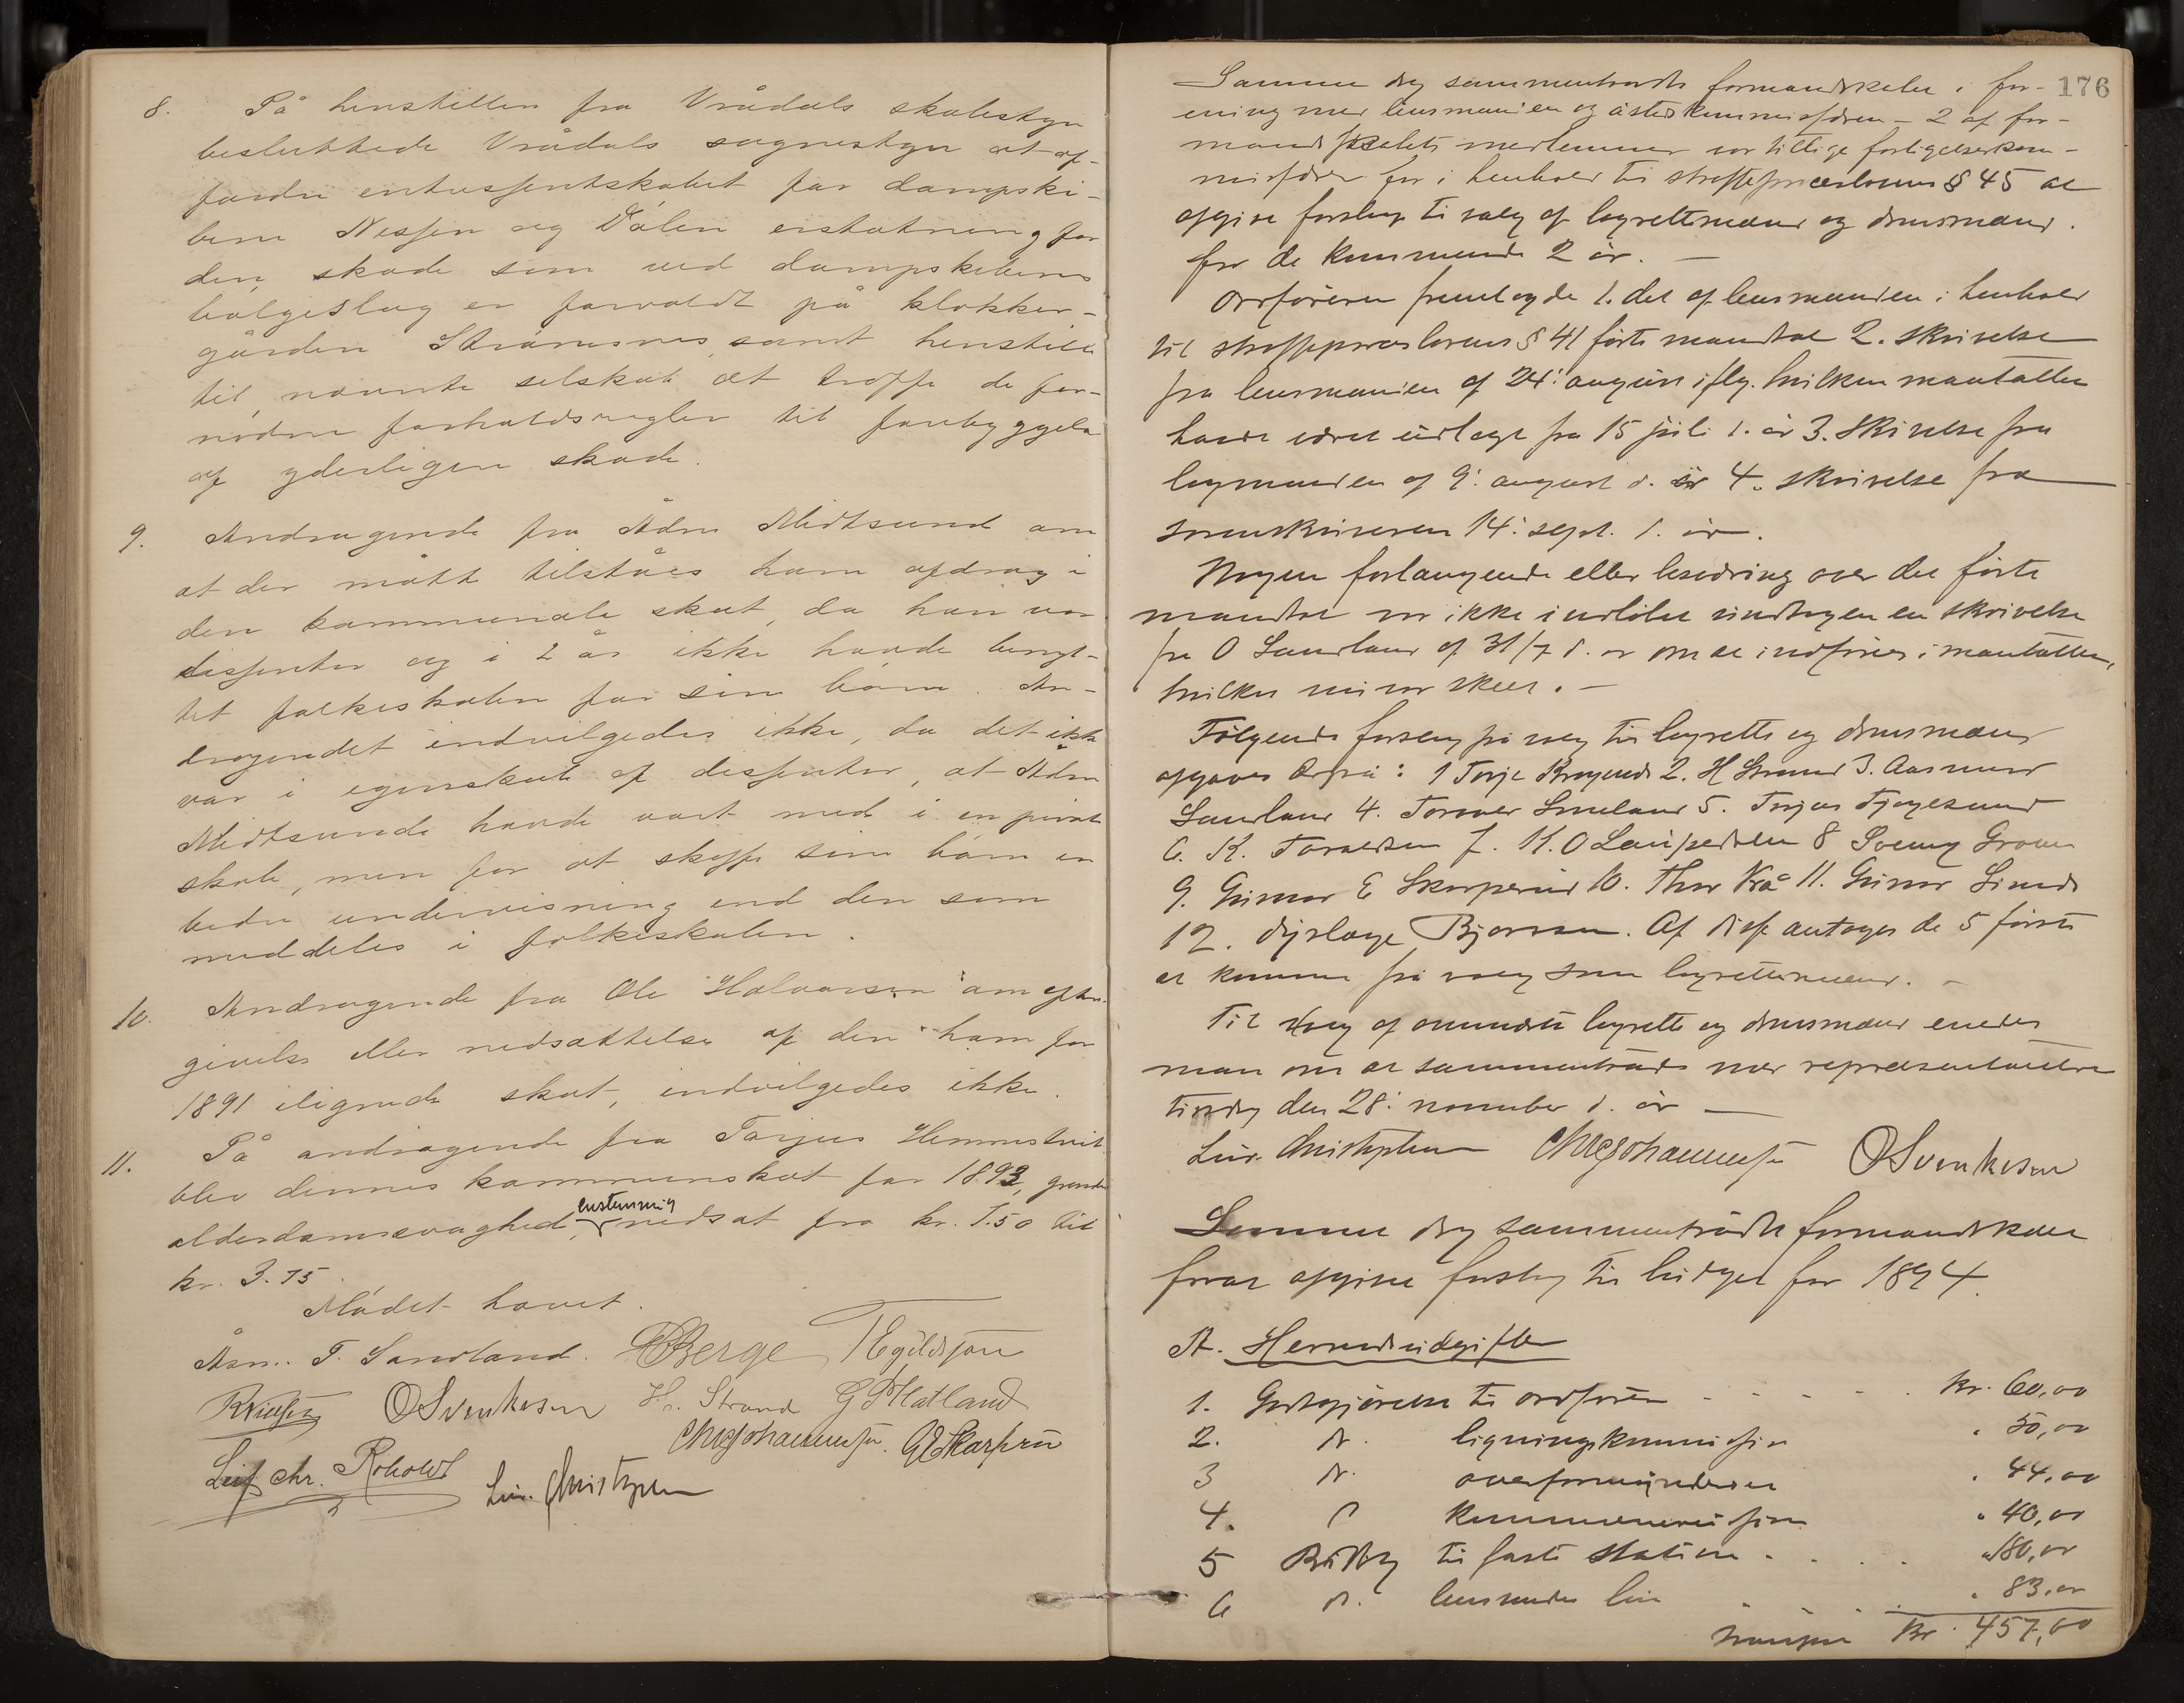 8. På henstillen fra Vrådals skolestyr
besluttede Vrådals sognestyr at af-
fordre entrussentskabet for dampski-
bene Nesjen og Dålen erstatning for
den skade som ved dampskibenes
bølgeslag er forvoldt på klokker-
gården Strømsnes, samt henstille
til nævnte selskab at træffe de for-
nødne forholdsregler til forebyggelse
af yderligere skade.
9. Andragende fra Adne Midtsund om
at der måtte tilståes ham afdrag i
den kommunale skat, da han var
dissenter og i 2 år ikke havde benyt-
tet folkeskolen for sine børn. An-
dragendet indvilgedes ikke, da det ikke
var i egenskab af dissenter, at Adne
Midtsund havde vært med i en privat
skole, men for at skaffe sine børn en
bedre undervisning end den som
meddeles i folkeskolen.
10. Andragende fra Ole Halvorsen om efter-
givelse eller nedsættelse af den ham for
1891 ilignede skat, indvilgedes ikke.
11. På andragende fra Tarjus Hemmestveit
blev dennes kommuneskat for 1893, grundet
enstemmig
alderdomssvaghed, nedsat fra kr. 7.50 til
kr. 3.75
Mødet hævet.
Åsm. T. Sandland. Berge T Egildsjon
OSvenkesen H. Strand G Hatland
Chr Johannesen. GESkarprû
Leif Chr. Roholdt Lur. Christophersen
176
Samme dag sammentraadte formandskabet i for-
ening med lensmanden og åstedskommissæren – 2 af for-
mandskabets medlemmer var tillige forligelseskom-
missærer for i henhold til straffeprocesloven § 45 at
afgive forslag til valg af lagrettemænd og domsmænd
for de kommende 2 år. —
Ordføreren fremlagde 1. det af lensmanden i henhold
til straffeproceslovens § 41 førte mandtal 2. skrivelse
fra lensmanden af 24' august ifølg. hvilken mantallet
havde været udlagt fra 15 juli d. år 3. Skrivelse fra
lagmanden af 9' august d. år 4. skrivelse fra
sorenskriveren 14' sept. d. år.
Nogen forlangende eller besværing over det førte
mandtal var ikke indløbet undtagen en skrivelse
fra O Sandland af 31/7 d. år om at indføres i mantallet,
hvilket nu var skeet. —
Følgende forslag på valg til lagrette og domsmænd
afgaves derpå: 1 Torje 2. H Strand 3. Aasmund
Sandland 4. Torover Smeland 5. Tarjus Tjagesund
6. K. Taraldsen 7. K. O 8 Sveinung Groven
9. Gunnar E Skarperud 10. Thor Vrå 11. Gunnar Sinnes
12. Bjørnson. Af disse antoges de 5 første
at komme på valg som lagrettemænd. —
Til valg af omundte lagrette og domsmænd enedes
man om at sammentræde med repræsentanterne
tirsdag den 28' november d. år —
Lur. Christophersen Chr Johannesen OSvenkesen
Samme dag sammentrådte formandskabet
for at afgive forslag til budget for 1894.
A. Herredsudgifter
1. Godtgjørelse til ordføren - - - - Kr. 60,00
2. do. ligningskommission " 50,00
3 do. overformynderiet " 44,00
4. do kommunerevision " 40,00
5 Bidrag til faste station - - - " 180,00
6 do. lensmandens løn - - - " 83,00
Transport Kr. 457,00